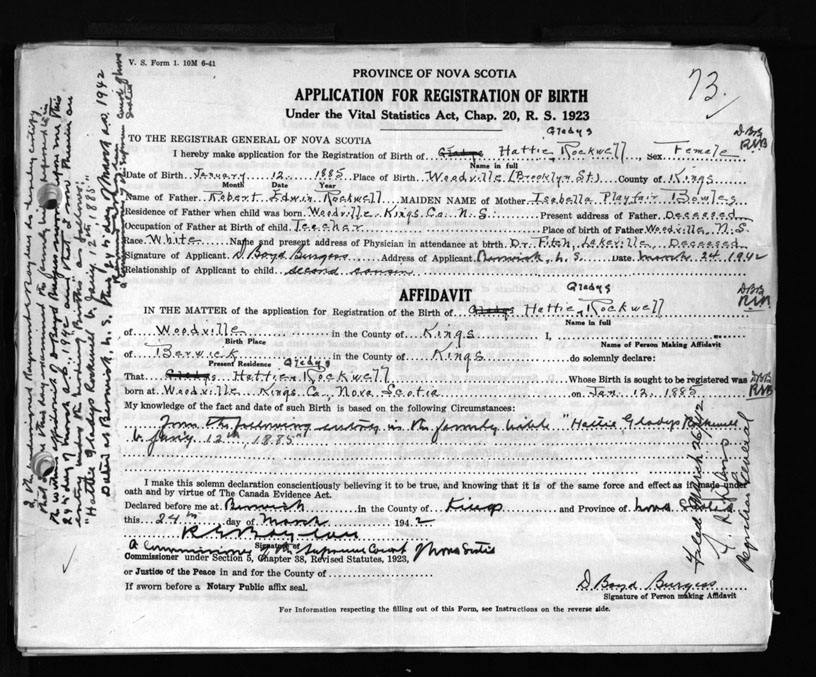 V. S. Form 1. 10M 6-41
73.
PROVINCE OF NOVA SCOTIA
APPLICATION FOR REGISTRATION OF BIRTH
Under the Vital Statistics Act, Chap. 20, R. S. 1923
TO THE REGISTRAR GENERAL OF NOVA SCOTIA
Gladys
DBB
RMB
I hereby make application for the Registration of Birth of Gladys Hattie, Rockwell, Sex Female
Name in full
Date of Birth January 12 1885 Place of Birth Woodville (Brooklyn St.) County of Kings
Month Date Year
Name of Father Robert Edwin Rockwell MAIDEN NAME of Mother Isabella Playfair Bowles
Residence of Father when child was born Woodville Kings Co. N. S. Present address of Father Deceased
Occupation of Father at Birth of child Teacher Place of birth of Father Woodville N. S.
Race White Name and present address of Physician in attendance at birth Dr. Fitch, Lakeville, Deceased
Signature of Applicant D Boyd Burgess Address of Applicant Berwick, N. S. Date March 24 1942
Relationship of Applicant to child second cousin
AFFIDAVIT
Gladys
DBB
RMB
IN THE MATTER of the application for Registration of the Birth of Gladys Hattie, Rockwell
Name in full
of Woodville in the County of Kings I,
Birth Place Name of Person Making Affidavit
of Berwick in the County of Kings do solemnly declare:
Present Residence Gladys
That Gladys Hattie, Rockwell Whose Birth is sought to be registered was
DBB
RMB
born at Woodville Kings Co., Nova Scotia on Jan. 12, 1885
My knowledge of the fact and date of such Birth is based on the following Circumstances:
from the following entry in the family bible "Hattie Gladys Rockwell
b. Jan'y 12th, 1885"
I make this solemn declaration conscientiously believing it to be true, and knowing that it is of the same force and effect as if made under
oath and by virtue of The Canada Evidence Act.
Declared before me at Berwick in the County of Kings and Province of Nova Scotia
this 24th day of March 1942
Signature of
a Commissioner of the Supreme Court of Nova Scotia
Commissioner under Section 5, Chapter 38, Revised Statutes, 1923,
or Justice of the Peace in and for the County of
If sworn before a Notary Public affix seal.
D Boyd Burgess
Signature of Person making Affidavit
For Information respecting the filling out of this Form, see Instructions on the reverse side.
Filed March 26/42
Registrar General
24th day of March A.D. 1942 and that I saw therein an
entry under the heading Births as follows:
"Hattie Gladys Rockwell b. Jan'y 12th 1885"
Dated at Berwick N. S. this 24th day of March A.D. 1942